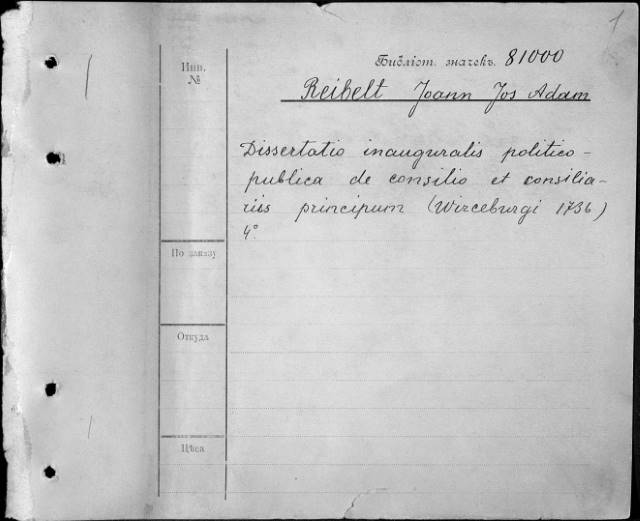 1
Библіот. значекъ 81000
Инв.
№
Reibelt Joann Jos Adam
Dissertatio inauguralis politico-
publica de consilio et consilia-
riis principum (Wirceburgi 1736)
4°
По заказу
Откуда
Цѣна